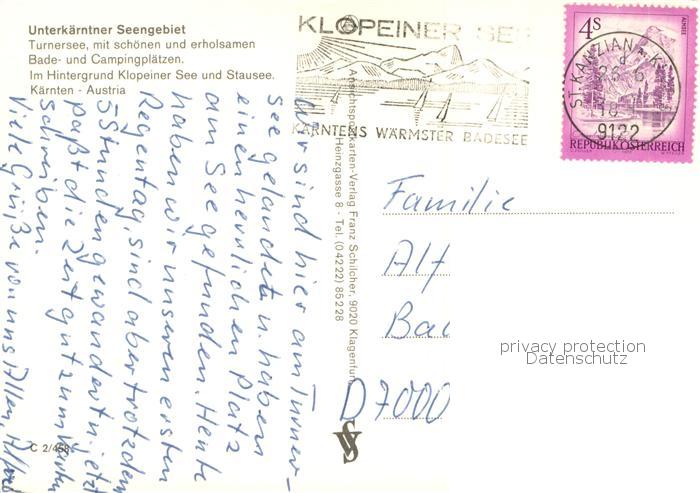 Unterkärntner Seengebiet
Turnersee, mit schönen und erholsamen
Bade- und Campingplätzen.
Im Hintergrund Klopeiner See und Stausee.
Kärnten - Austria
KLOPEINER SEE
KÄRNTENS WÄRMSTER BADESEE
4S
ALMSEE
REPUBLIK ÖSTERREICH
ST. KANZIAN A. K.
9122
Wir sind hier am Turner-
see gelandet u. haben
einen herrlichen Platz
am See gefunden. Heute
haben wir unseren ersten
Regentag, sind aber trotzdem
5 Stunden gewandert u. jetzt
paßt die Zeit gut zum Karten
schreiben.
Viele Grüße von uns Allen,
Ansichtspostkarten-Verlag Franz Schilcher, 9020 Klagenfurt
Heinzgasse 8 - Tel. (0 42 22) 85 2 28
Familie
Alf
Bau
D 7000
privacy protection
Datenschutz
C 2/458